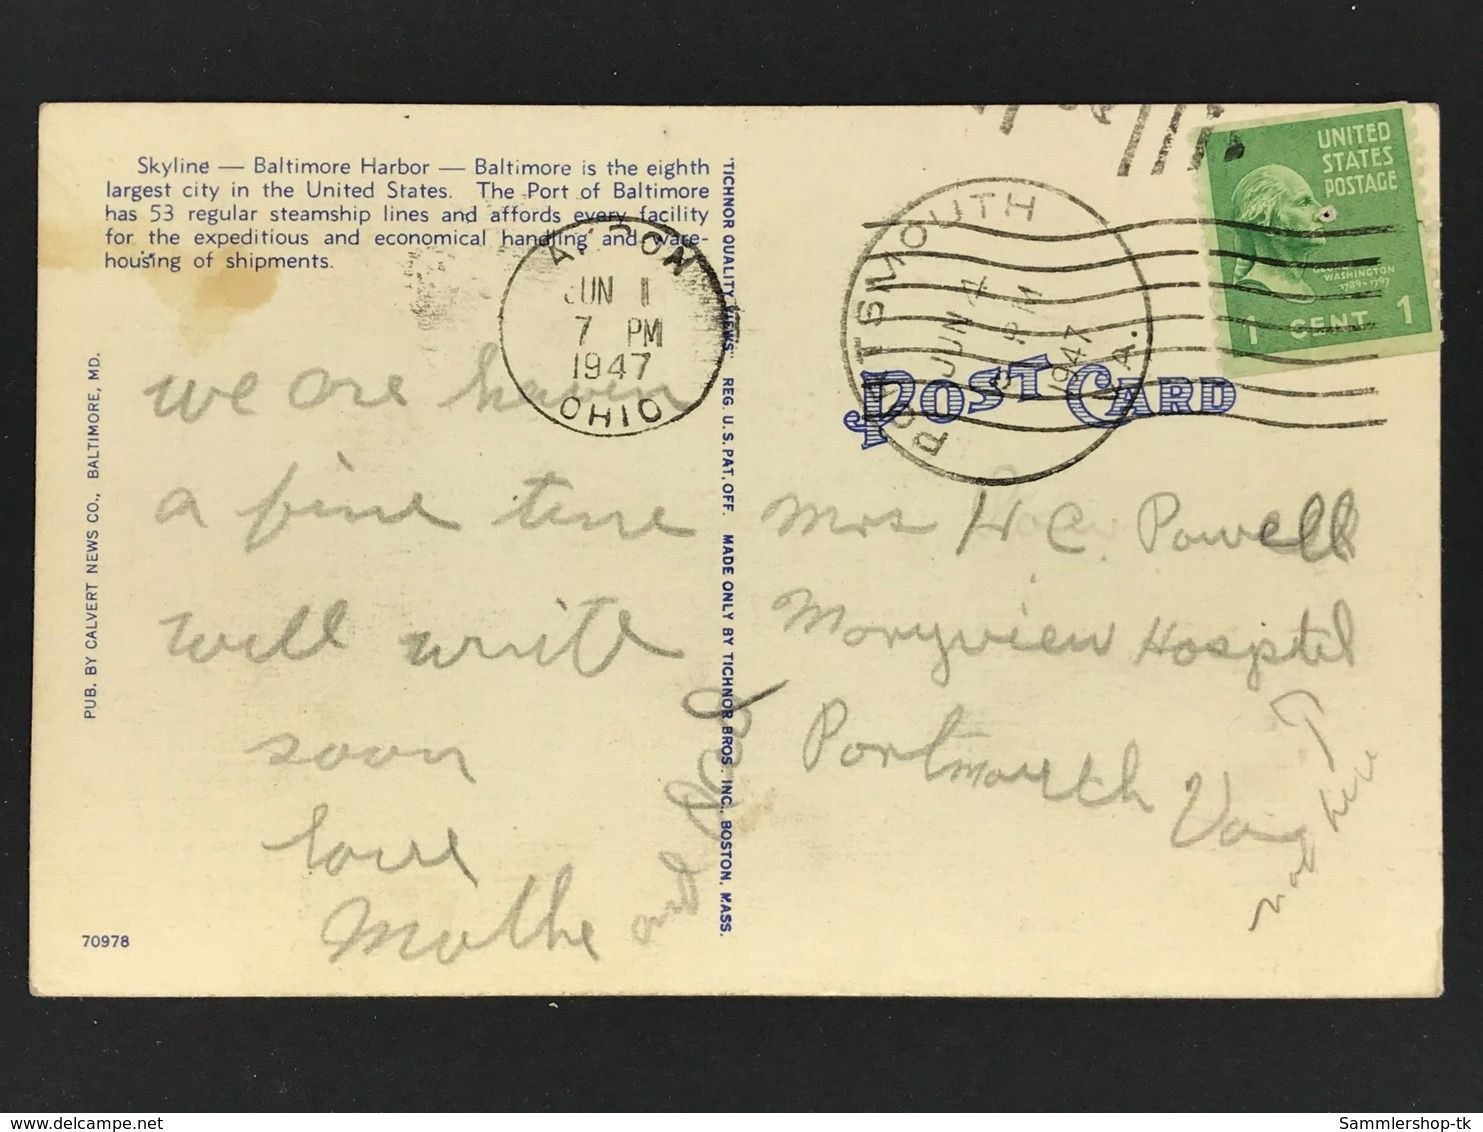 Skyline — Baltimore Harbor — Baltimore is the eighth
largest city in the United States. The Port of Baltimore
has 53 regular steamship lines and affords every facility
for the expeditious and economical handling and ware-
housing of shipments.
PUB. BY CALVERT NEWS CO., BALTIMORE, MD.
70978
"TICHNOR QUALITY VIEWS" REG. U.S. PAT. OFF. MADE ONLY BY TICHNOR BROS. INC., BOSTON, MASS.
AKRON
JUN 1
7 PM
1947
OHIO
we are haven
a fine time
will write
soon
love
Mothe
and Dad
PORTSMOUTH
JUN 4
PM
1947
VA.
UNITED
STATES
POSTAGE
GEORGE
WASHINGTON
1789-1797
1 CENT 1
POST CARD
Mrs H C. Powell
Maryview Hospital
Portmouth Va
not here